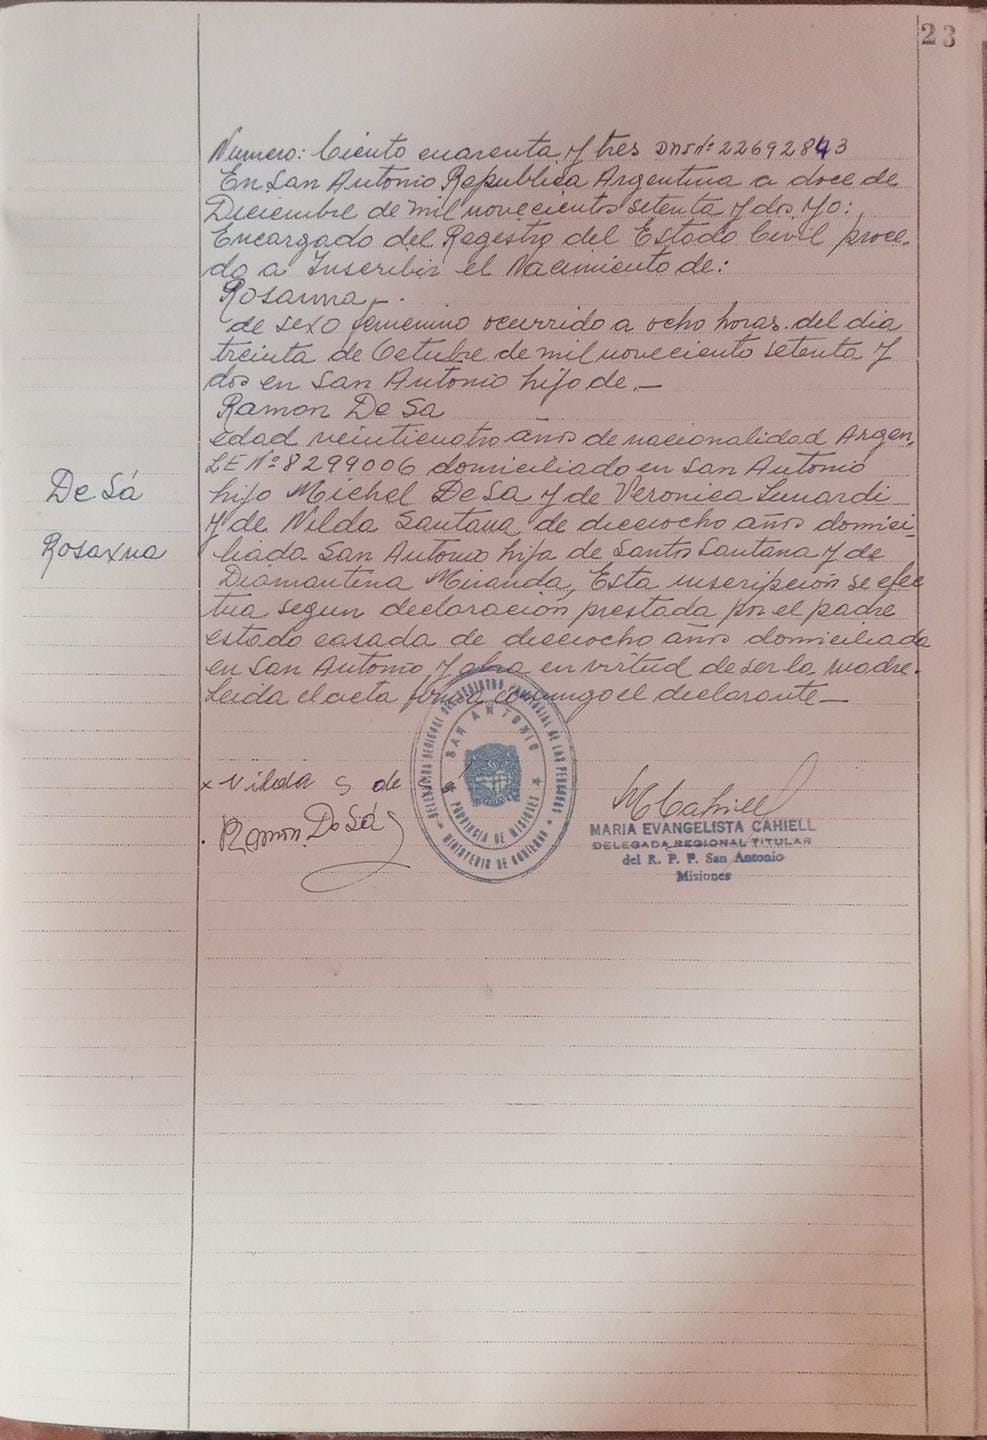 23
Numero: Ciento cuarenta y tres DNI Nº 22692843
En San Antonio Republica Argentina a doce de
Diciembre de mil novecientos setenta y dos, yo:
Encargado del Registro del Estado Civil proce-
do a Inscribir el Nacimiento de:
Rosanna
de sexo femenino ocurrido a ocho horas del dia
treinta de Octubre de mil noveciento setenta y
dos en San Antonio hijo de.—
Ramon De Sa
edad veinticuatro años de nacionalidad Argen.
LE Nº 8299006 domiciliado en San Antonio
De Sá
hijo Michel De Sa y de Veronica Lunardi
y de Nilda Santana de dieciocho años domici-
Rosaxna
liada San Antonio hija de Santos Santana y de
Diamantina Miranda, Esta inscripción se efec
tua segun declaración prestada por el padre
estado casada de dieciocho años domiciliada
en San Antonio y obra en virtud de ser la madre.
Leida el acta firma conmigo el declarante—
x Nilda S de Sá
Ramon De Sá
DELEGACION REGIONAL DEL REGISTRO PROVINCIAL DE LAS PERSONAS
SAN ANTONIO
PROVINCIA DE MISIONES
MINISTERIO DE GOBIERNO
MCahiell
MARIA EVANGELISTA CAHIELL
DELEGADA REGIONAL TITULAR
del R. P. P. San Antonio
Misiones